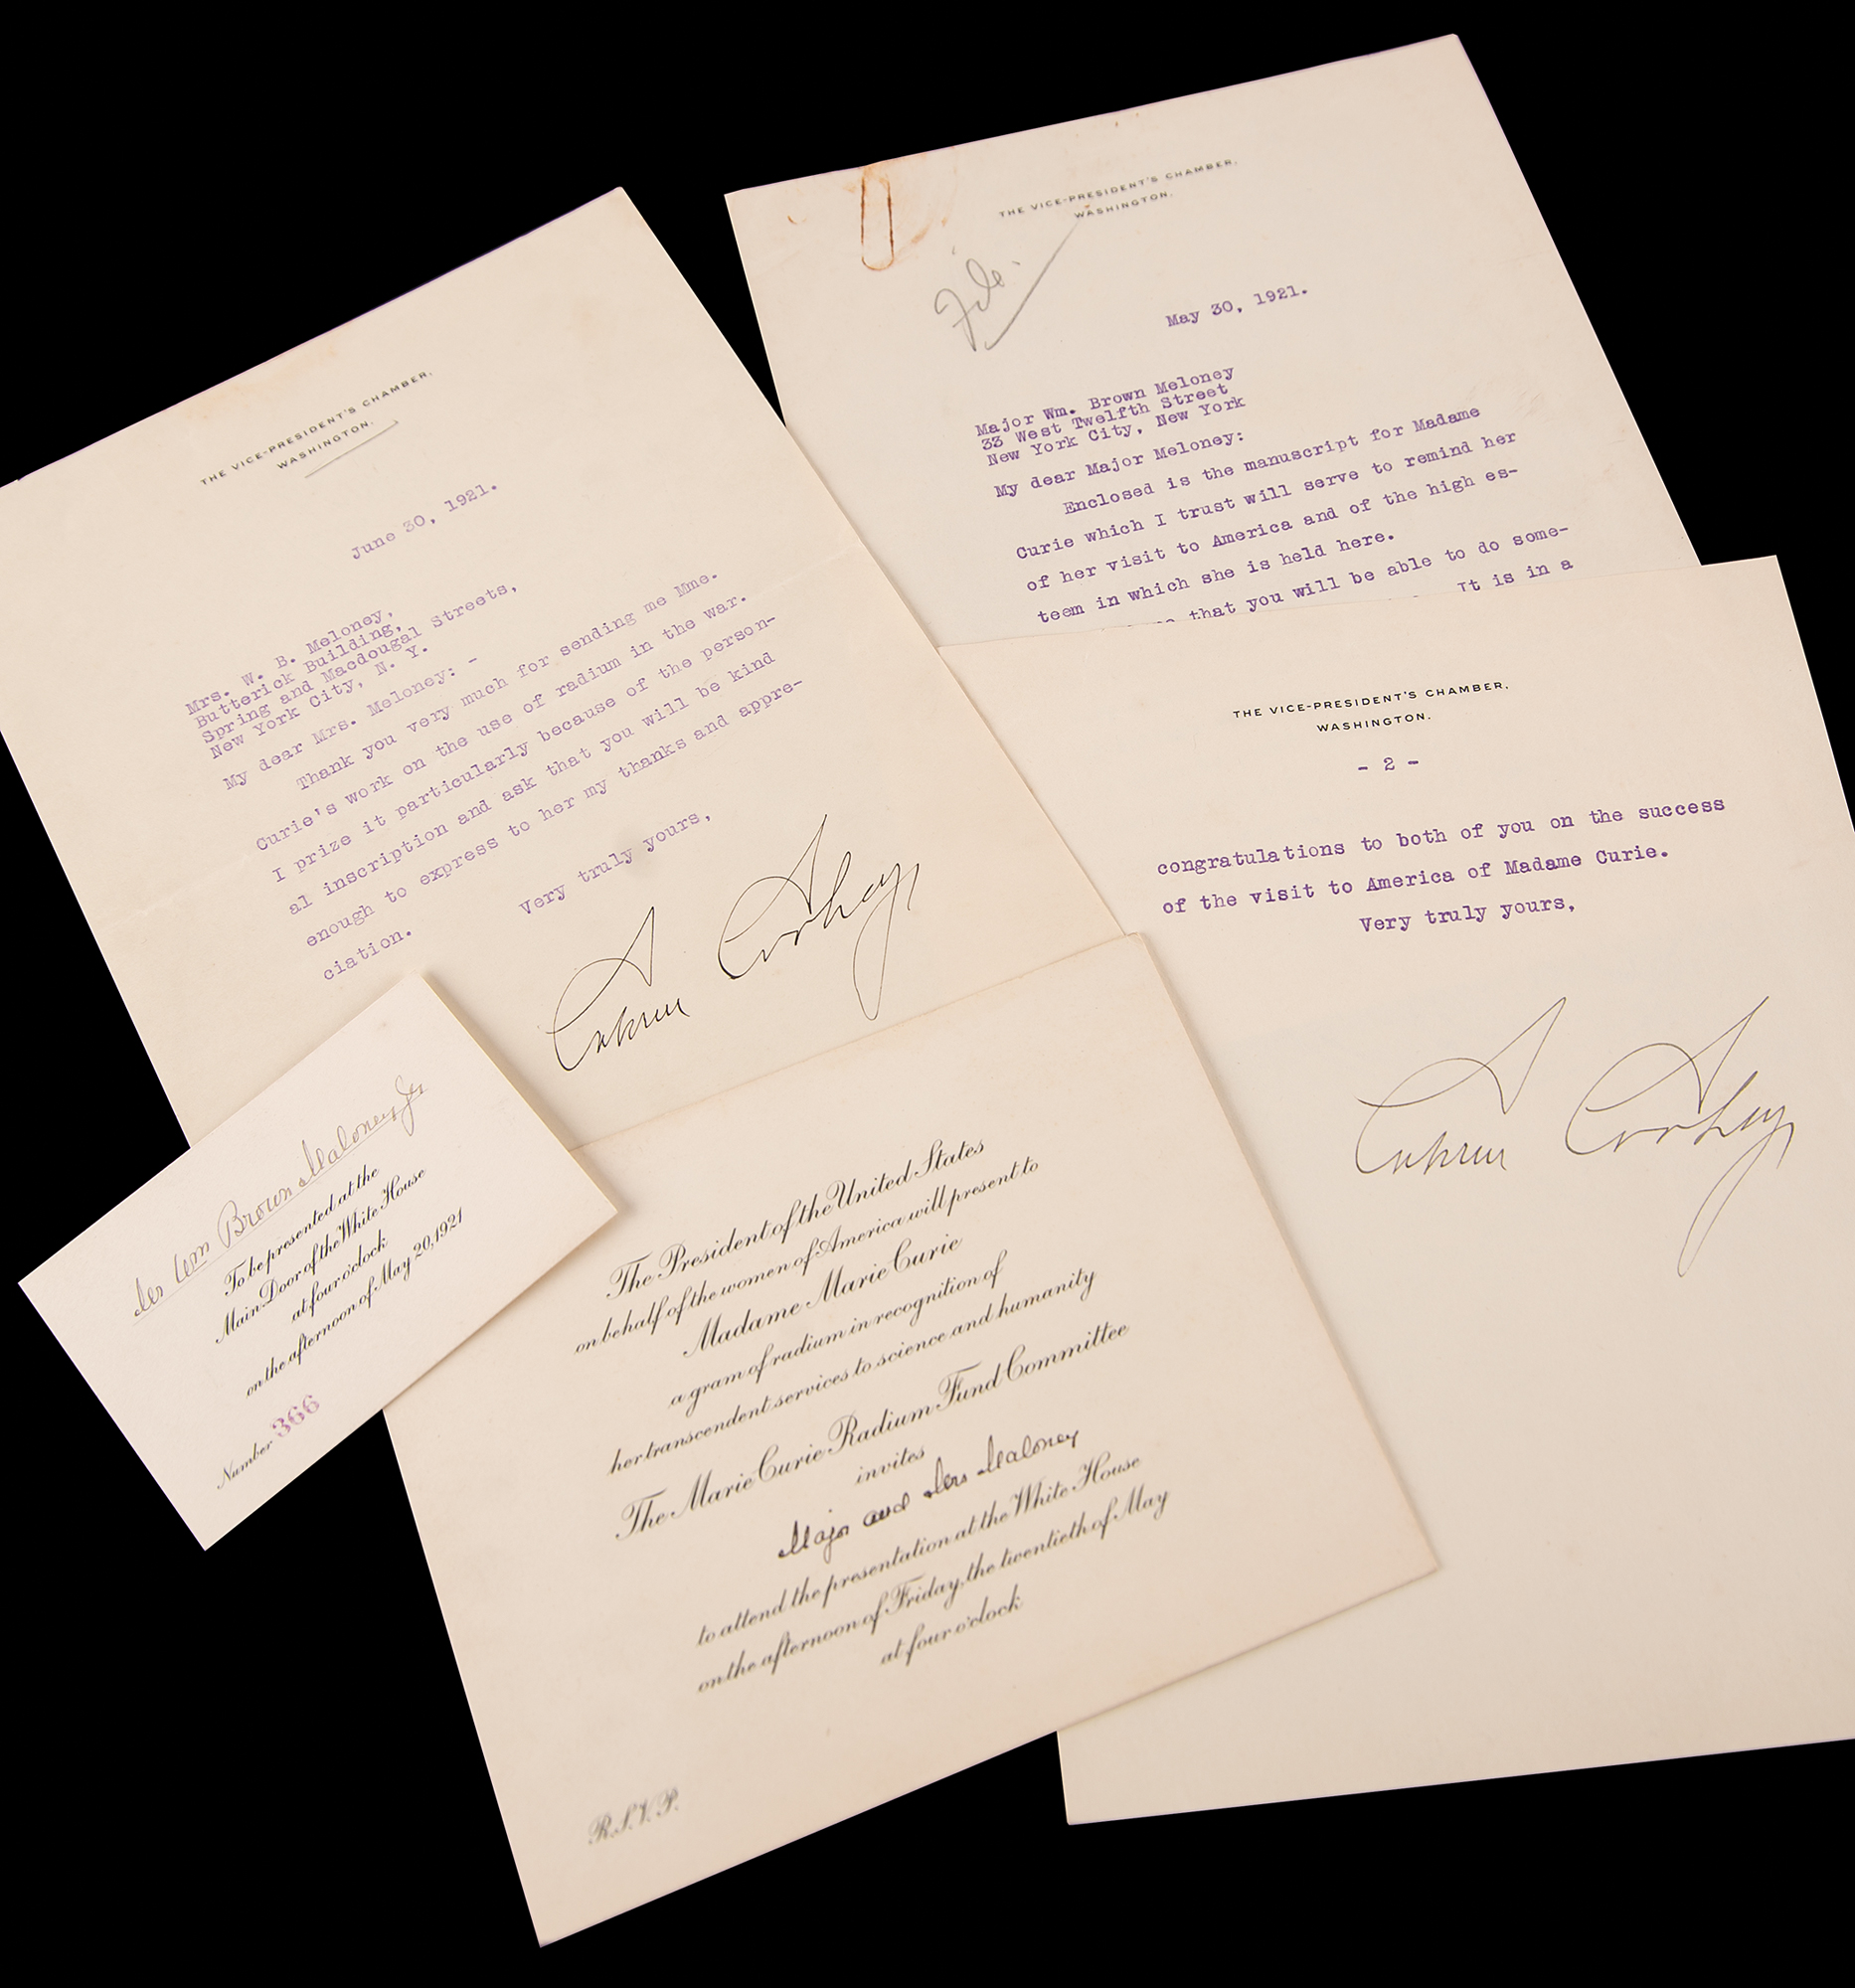 THE VICE-PRESIDENT'S CHAMBER,
WASHINGTON.
June 30, 1921.
Mrs. W. B. Meloney,
Butterick Building,
Spring and Macdougal Streets,
New York City, N. Y.
My dear Mrs. Meloney: -
Thank you very much for sending me Mme.
Curie's work on the use of radium in the war.
I prize it particularly because of the person-
al inscription and ask that you will be kind
enough to express to her my thanks and appre-
ciation.
Very truly yours,
Calvin Coolidge
THE VICE-PRESIDENT'S CHAMBER,
WASHINGTON.
File.
May 30, 1921.
Major Wm. Brown Meloney
33 West Twelfth Street
New York City, New York
My dear Major Meloney:
Enclosed is the manuscript for Madame
Curie which I trust will serve to remind her
of her visit to America and of the high es-
teem in which she is held here.
that you will be able to do some-
It is in a
THE VICE-PRESIDENT'S CHAMBER,
WASHINGTON.
- 2 -
congratulations to both of you on the success
of the visit to America of Madame Curie.
Very truly yours,
Calvin Coolidge
Mrs Wm Brown Maloney Jr
To be presented at the
Main Door of the White House
at four o'clock
on the afternoon of May 20, 1921
Number 366
The President of the United States
on behalf of the women of America will present to
Madame Marie Curie
a gram of radium in recognition of
her transcendent services to science and humanity
The Marie Curie Radium Fund Committee
invites
Major and Mrs Maloney
to attend the presentation at the White House
on the afternoon of Friday, the twentieth of May
at four o'clock
R.S.V.P.